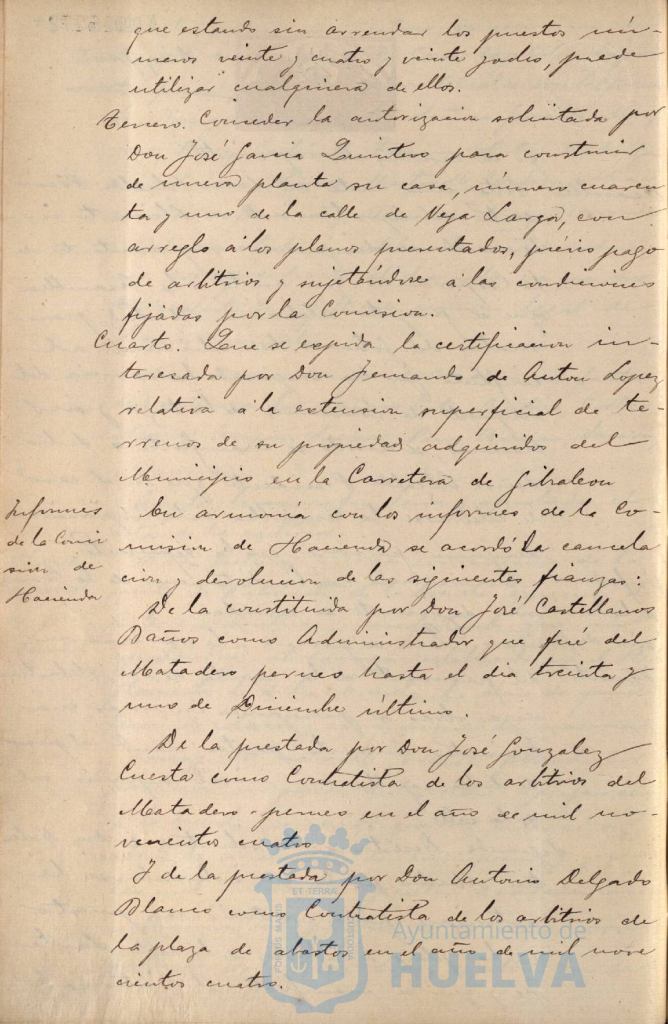 que estando sin arrendar los puestos nú-
meros veinte y cuatro y veinte y ocho, puede
utilizar cualquiera de ellos.
Tercero. Conceder la autorizacion solicitada por
Don José Garcia Quintero para construir
de nueva planta su casa, número cuaren
ta y uno de la calle de Vega Larga, con
arreglo á los planos presentados, prévio pago
de arbitrios y sujetándose á las condiciones
fijadas por la Comision.
Cuarto. Que se expida la certificacion in-
teresada por Don Fernando de Anton Lopez
relativa á la extension superficial de te-
rrenos de su propiedad adquiridos del
Municipio en la Carretera de Gibraleon
Informes
de la Comi
sion de
Hacienda
En armonía con los informes de la Co-
mision de Hacienda se acordó la cancela
cion y devolucion de las siguientes fianzas:
De la constituida por Don José Castellanos
Baños como Administrador que fué del
Matadero pernes hasta el dia treinta y
uno de Diciembre último.
De la prestada por Don José Gonzalez
Cuesta como Contratista de los arbitrios del
Matadero-pernes en el año de mil no-
vecientos cuatro
Y de la prestada por Don Antonio Delgado
Blanco como Contratista de los arbitrios de
la plaza de abastos en el año de mil nove
cientos cuatro.
Ayuntamiento de
HUELVA